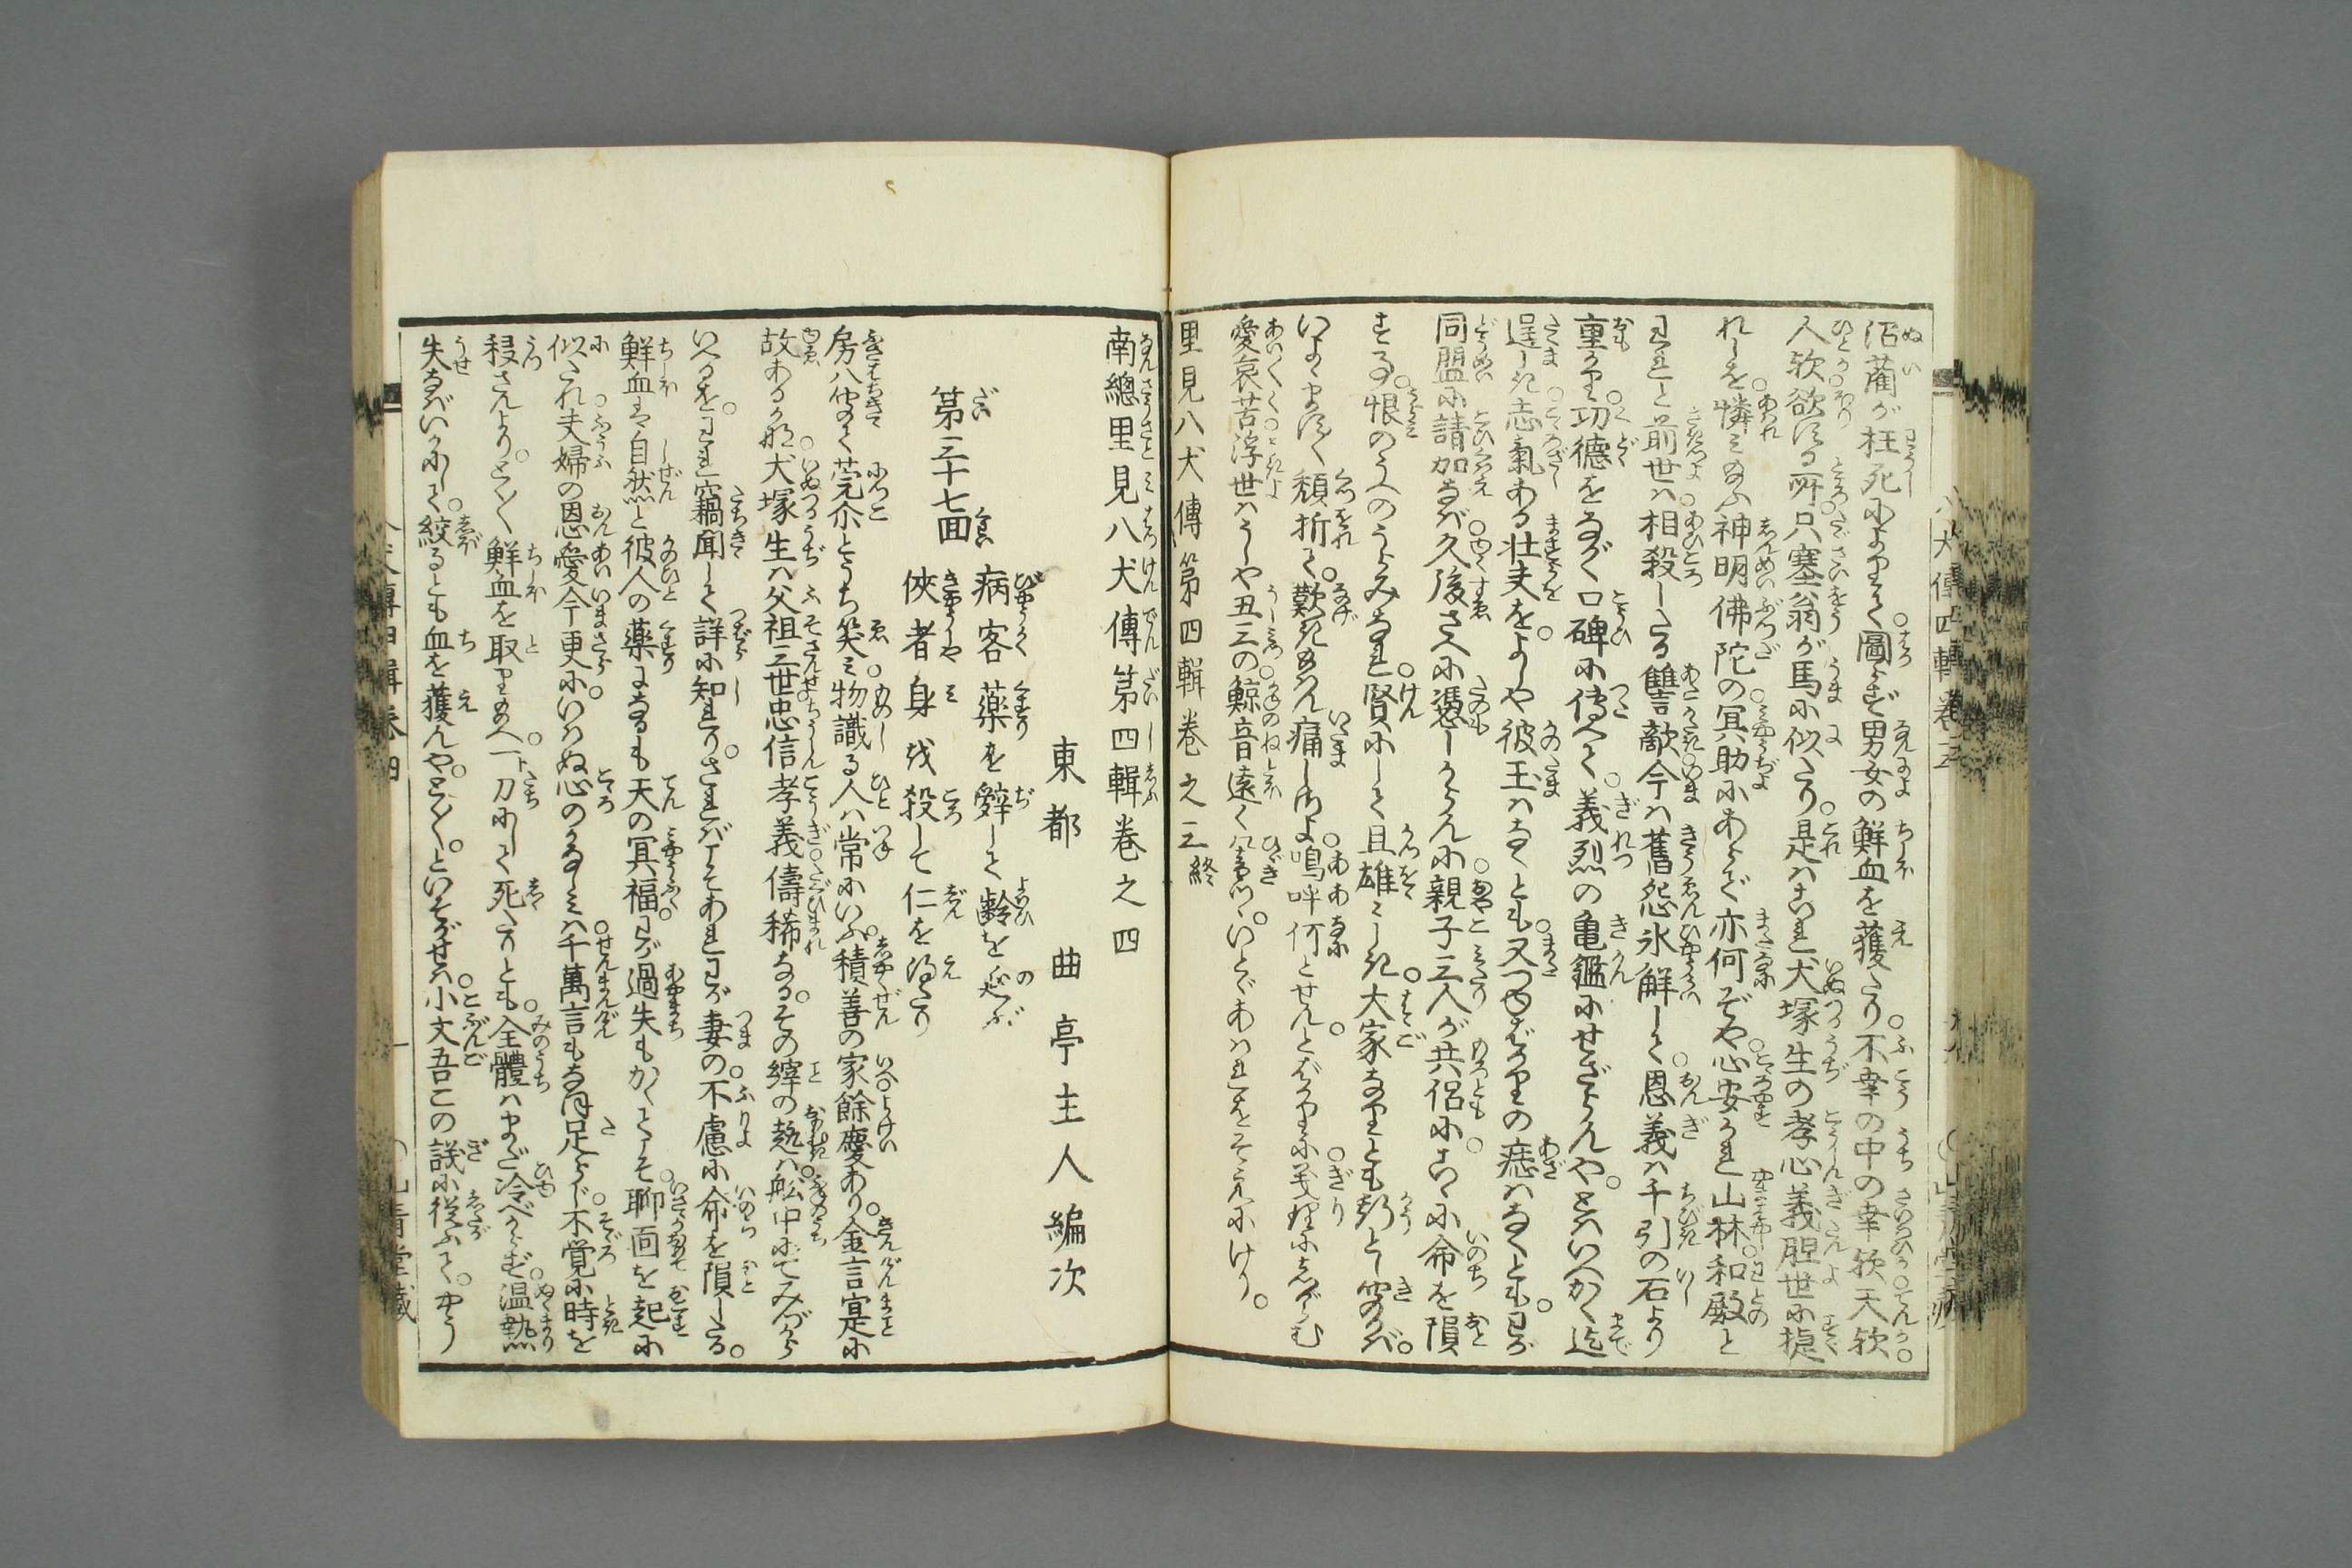 沼藺が枉死によりて。圖らず男女の鮮血を獲たり。不幸の中の幸歟天歟。
人歟欲する所只塞翁が馬に似たり。是はこれ犬塚生の孝心義胆世に捷
れしを。憐みたまふ神明佛陀の冥助にあらで亦何ぞや。心安かれ山林和殿と
われと前世は。相殺したる讐言敵今は舊怨氷解して。恩義は千引の石より
重かり。功德をながく口碑に傳へて。義烈の亀鑑にせざらんや。とはいへかく迄
逞しき志氣ある壮夫を。よしや彼玉はなくとも。又つやつやばかりの痣はなくとも。わが
同盟に請加なば久後さへに憑しからんに。親子三人が共侶に。こゝに命を隕
する事。恨のうへのうらみなれ。賢にして且雄々しき。大家なりとも勢とし窮らば。
いよゝますます頽折て。歎きやせん痛しさよ。嗚呼何とせんとばかりに。義理にしがらむ
愛哀苦。浮世はうしや丑三の。鯨音遠く響つゝ。いとゞあはれをそえにけり。
里見八犬傳第四輯卷之三終
南總里見八犬傳第四輯卷之四
東都 曲亭主人編次
第三十七回 病客藥を辤して齡を延ぶ
俠者身を殺して仁を得たり
房八聞てにつことうち笑み。物識る人は常にいふ。積善の家餘慶あり。金言寔に
故あるかな。犬塚生は父祖三世。忠信孝義儔稀なる。その縡の趣は舩中にてみづから
いへるを。われ竊聞して詳に知れり。さればこそあれわが妻の。不慮に命を隕したる。
鮮血は自然と彼人の藥になるも天の冥福。わが過失もかくてこそ。聊面を起に
似たれ。夫婦の恩愛今更に。いはぬ心のかなしみは。千萬言もなほ足らじ。不覚に時を
移さんより。とく〳〵鮮血を取りたまへ。一刀にして死たりとも。全體はまだ冷べからず。温熱
失なばいかにして。絞るとも血を獲んや。とく〳〵。といそがせば。小文吾この議に從ふて。やう
八犬傳四輯卷三
八犬傳四輯卷四
山青堂藏